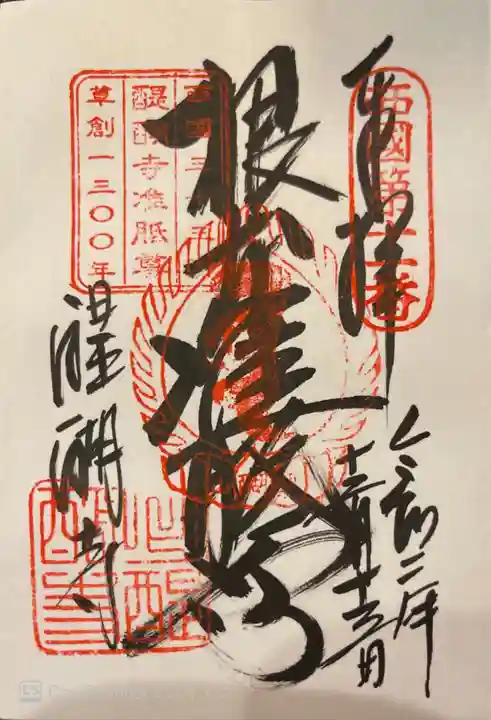 奉拝
西國第十一番
令和二年
十一月十三日
根本准胝尊
西國三十三所
醍醐寺准胝尊
草創一三〇〇年
醍醐寺